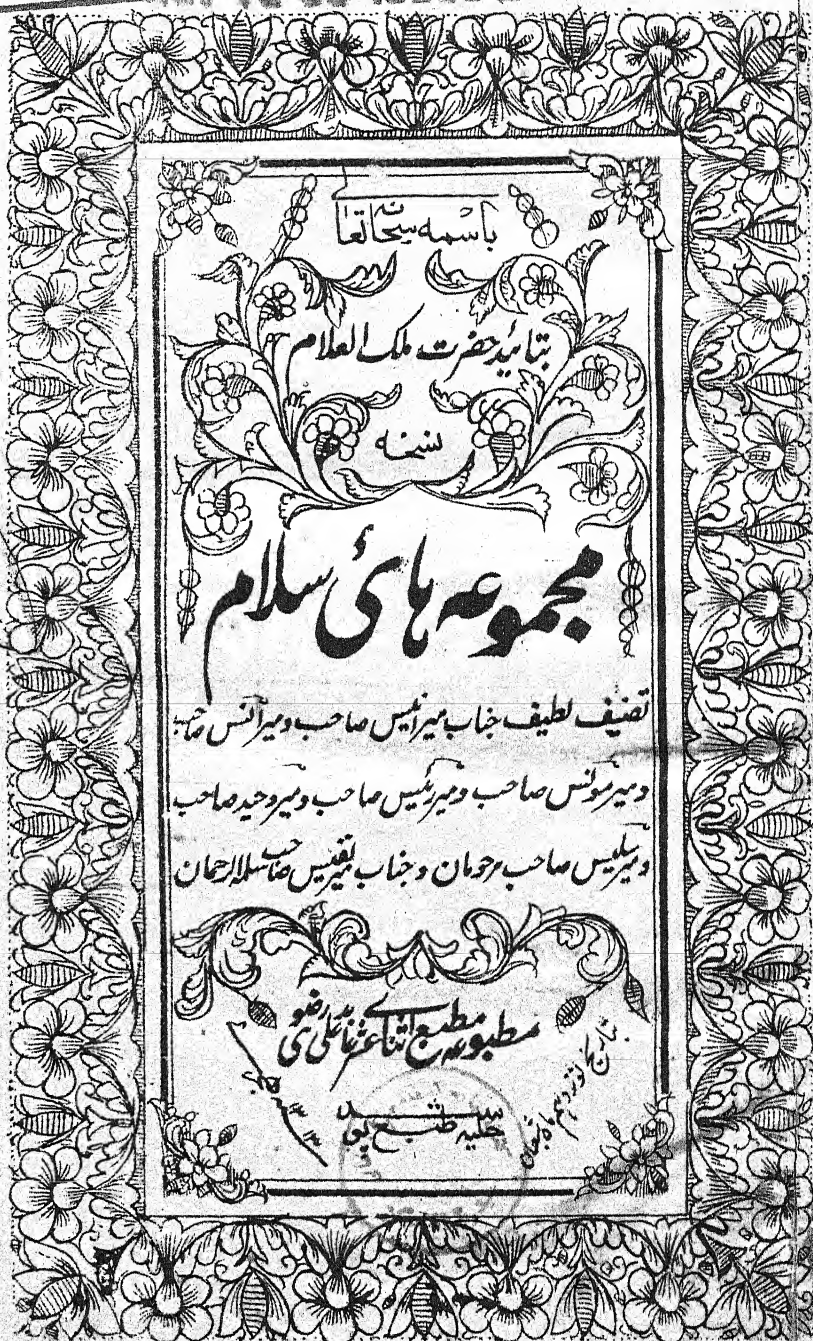 باسمہ سبحانہ تعالے
بتائید حضرت ملک العلام
نسخہ
مجموعہ ہائ سلام
تصنیف لطیف جناب میر انیس صاحب و میر انس صاحب
و میر مونس صاحب و میر رئیس صاحب و میر وحید صاحب
و میر سلیس صاحب مرحومان و جناب میر نفیس صاحب سلمہ الرحمان
مطبوعہ مطبع اثنا عشری عابد علی رضوی
حلیہ طبع پوشید
بتاریخ نوزدہم ماہ شعبان